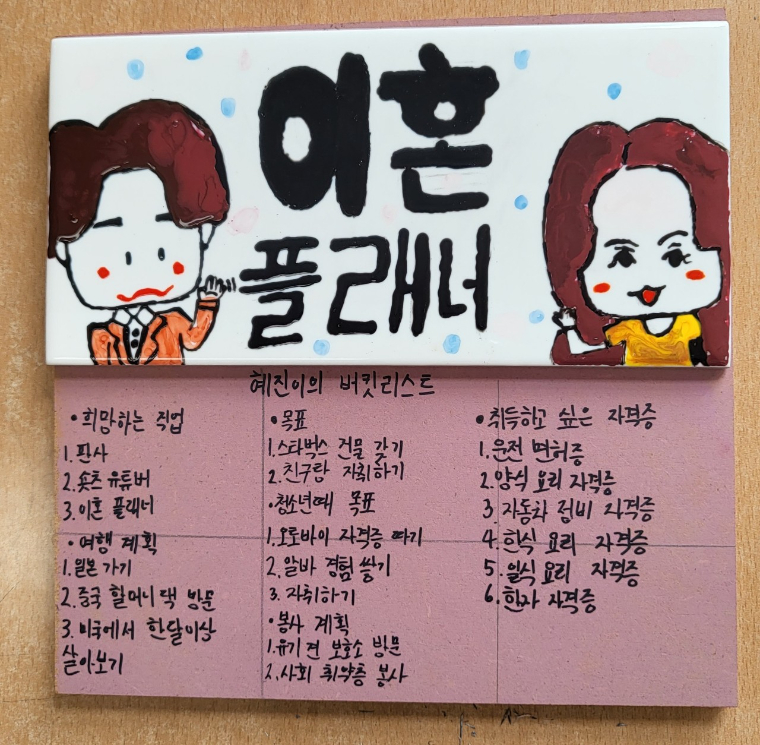 이혼
플래너
혜진이의 버킷리스트
•희망하는 직업
1. 판사
2. 숏츠 유튜버
3. 이혼 플래너
•여행 계획
1. 일본 가기
2. 중국 할머니 댁 방문
3. 미국에서 한달이상
살아보기
•목표
1. 스타벅스 건물 갖기
2. 친구랑 자취하기
•청소년때 목표
1. 오토바이 자격증 따기
2. 알바 경험 쌓기
3. 자취하기
•봉사 계획
1. 유기견 보호소 방문
2. 사회 취약층 봉사
•취득하고 싶은 자격증
1. 운전 면허증
2. 양식 요리 자격증
3. 자동차 정비 자격증
4. 한식 요리 자격증
5. 일식 요리 자격증
6. 한자 자격증